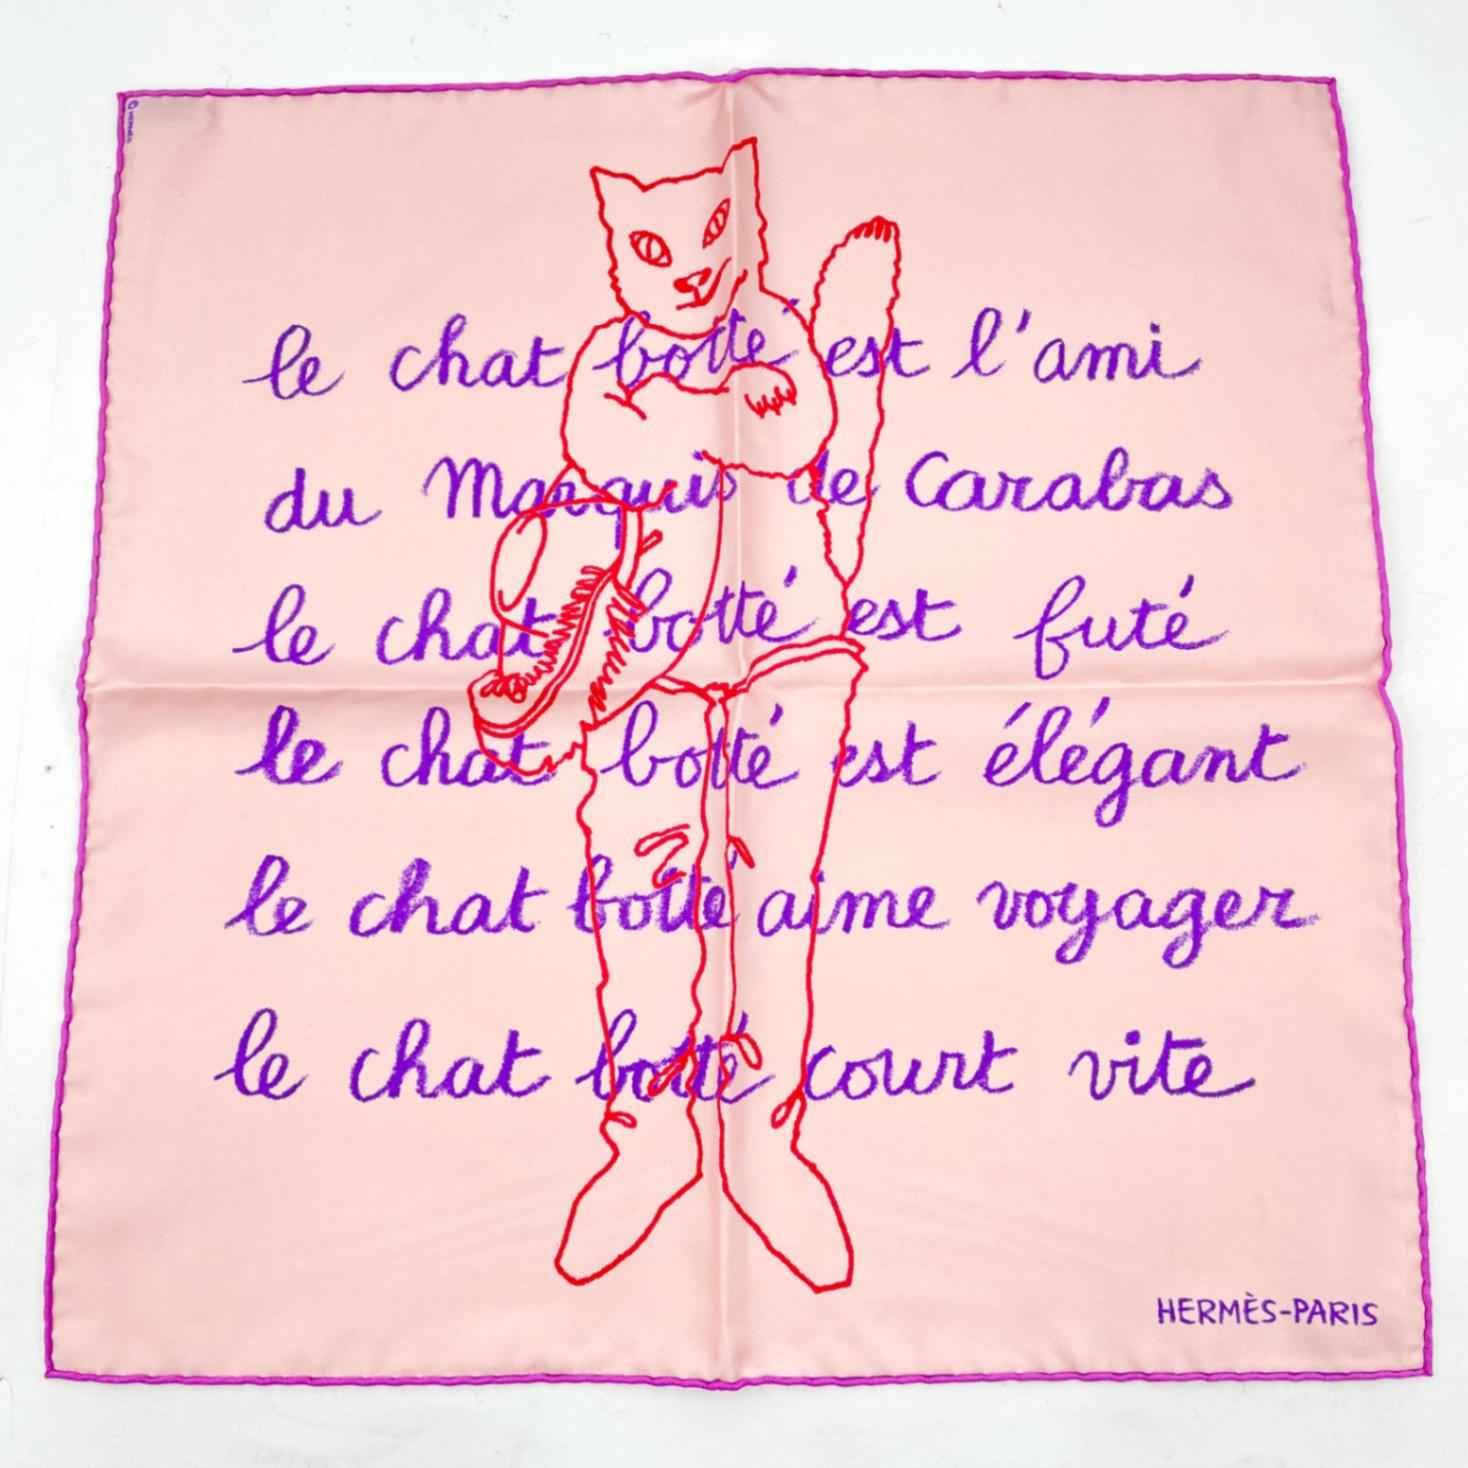 © HERMÈS
le chat botté est l'ami
du Marquis de Carabas
le chat botté est futé
le chat botté est élégant
le chat botté aime voyager
le chat botté court vite
HERMÈS-PARIS